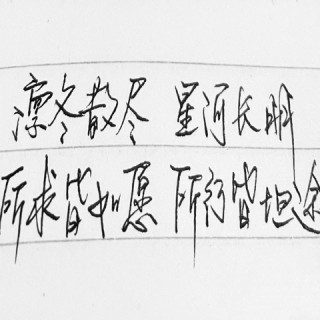 凛冬散尽 星河长明
所求皆如愿 所行皆坦途